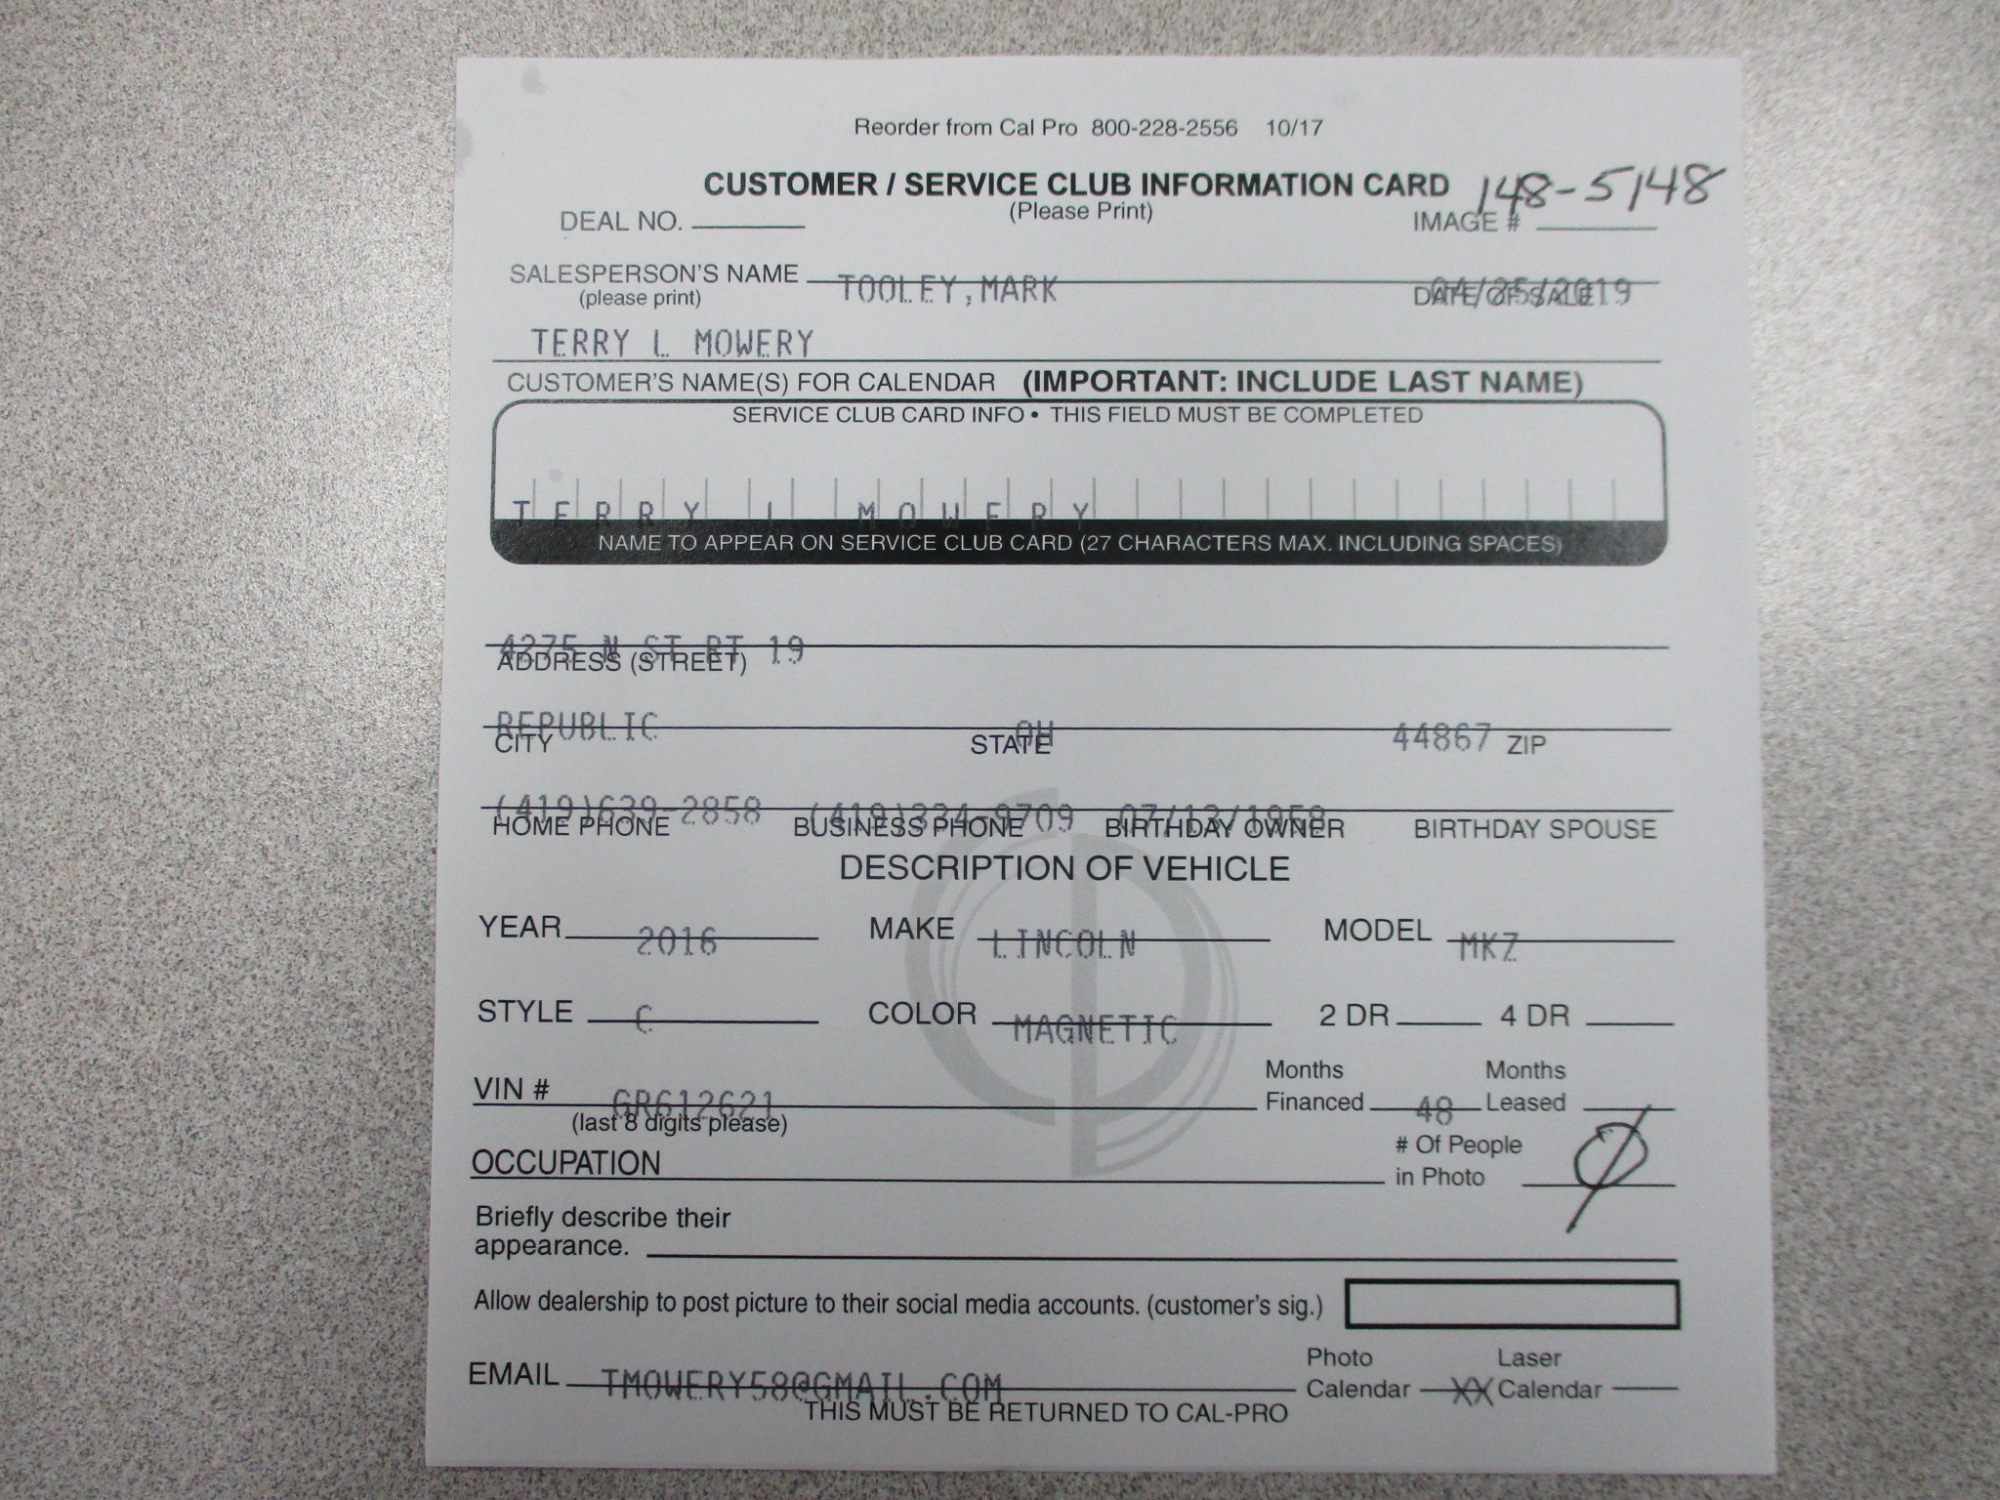 Reorder from Cal Pro 800-228-2556 10/17
CUSTOMER / SERVICE CLUB INFORMATION CARD 148-5148
(Please Print)
DEAL NO. IMAGE #
SALESPERSON'S NAME TOOLEY,MARK 04/25/2019
(please print) DATE OF SALE
TERRY L MOWERY
CUSTOMER'S NAME(S) FOR CALENDAR (IMPORTANT: INCLUDE LAST NAME)
SERVICE CLUB CARD INFO • THIS FIELD MUST BE COMPLETED
TERRY L MOWERY
NAME TO APPEAR ON SERVICE CLUB CARD (27 CHARACTERS MAX. INCLUDING SPACES)
4275 N ST RT 19
ADDRESS (STREET)
REPUBLIC OH 44867
CITY STATE ZIP
(419)639-2858 (419)334-9709 07/13/1958
HOME PHONE BUSINESS PHONE BIRTHDAY OWNER BIRTHDAY SPOUSE
DESCRIPTION OF VEHICLE
YEAR 2016 MAKE LINCOLN MODEL MKZ
STYLE C COLOR MAGNETIC 2 DR 4 DR
Months Months
VIN # GR612621 Financed 48 Leased
(last 8 digits please)
# Of People
OCCUPATION in Photo Ø
Briefly describe their
appearance.
Allow dealership to post picture to their social media accounts. (customer's sig.)
Photo Laser
EMAIL TMOWERY58@GMAIL.COM Calendar XX Calendar
THIS MUST BE RETURNED TO CAL-PRO